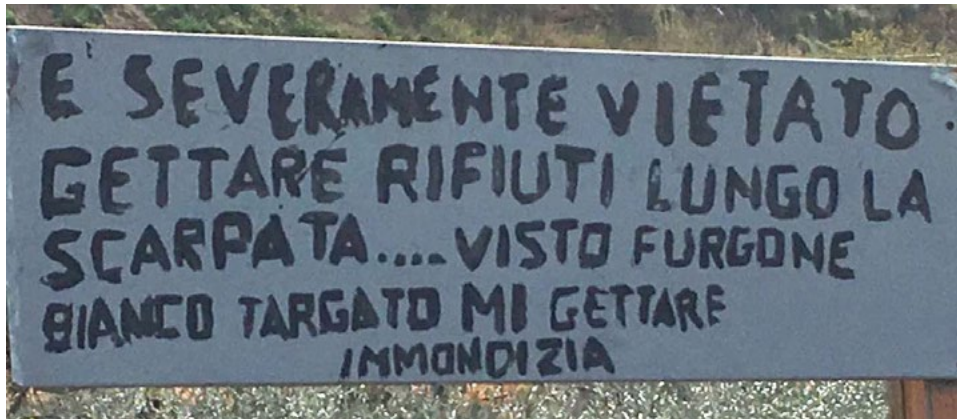 E' SEVERAMENTE VIETATO.
GETTARE RIFIUTI LUNGO LA
SCARPATA.... VISTO FURGONE
BIANCO TARGATO MI GETTARE
IMMONDIZIA